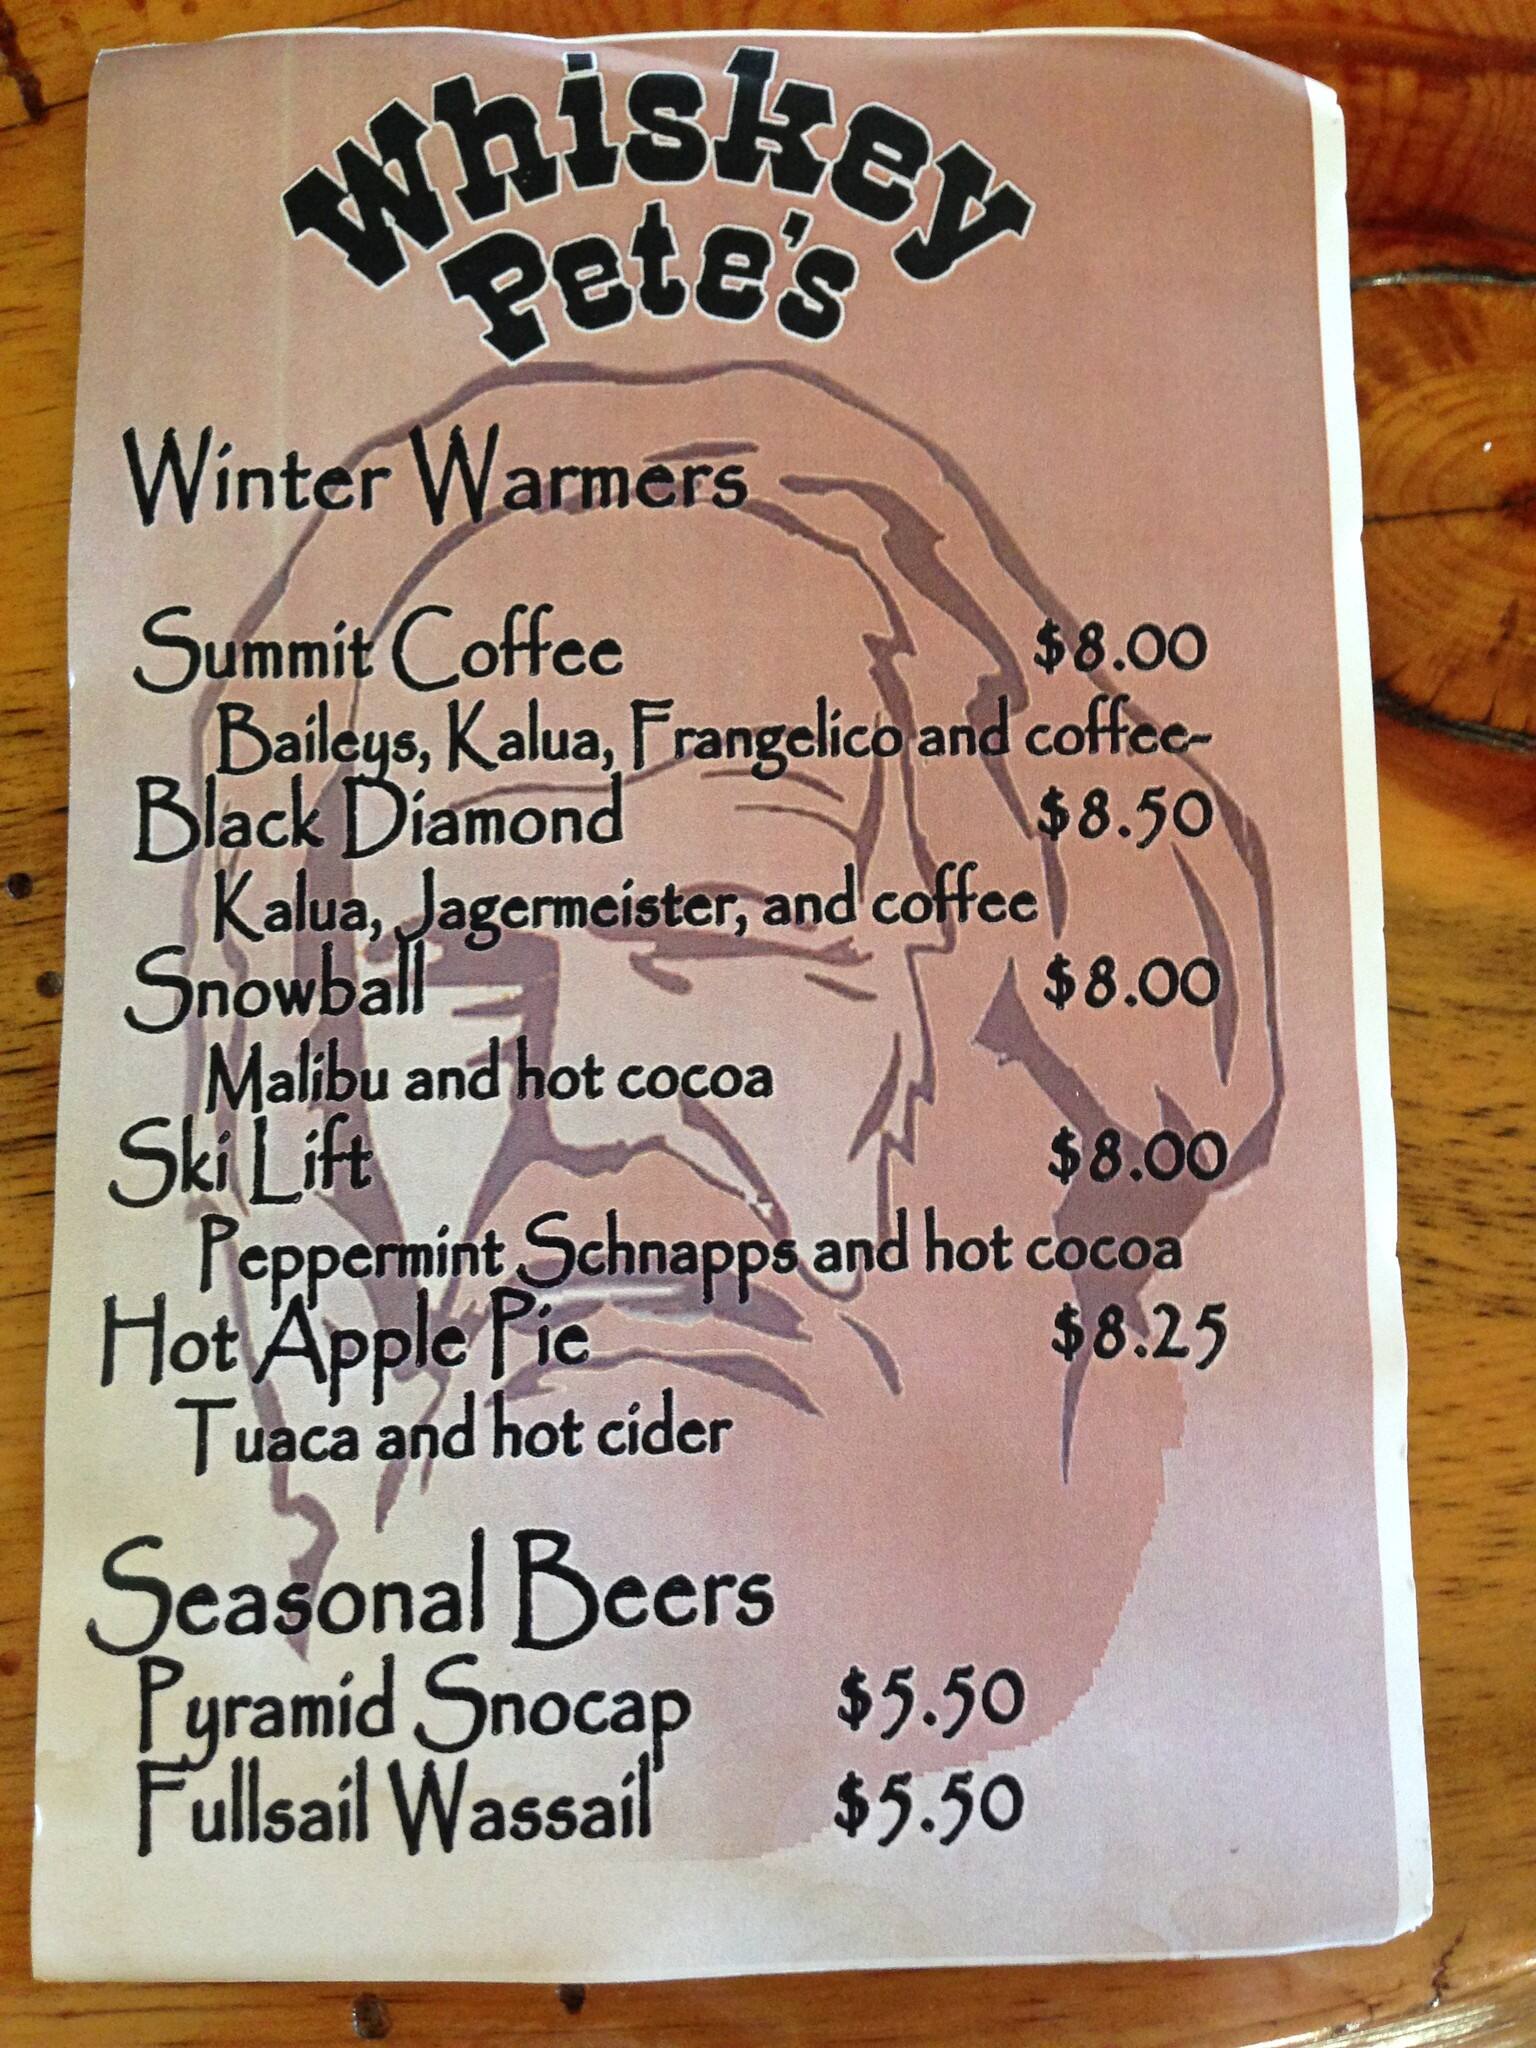 Whiskey
Pete's
Winter Warmers
Summit Coffee $8.00
Baileys, Kalua, Frangelico and coffee-
Black Diamond $8.50
Kalua, Jagermeister, and coffee
Snowball $8.00
Malibu and hot cocoa
Ski Lift $8.00
Peppermint Schnapps and hot cocoa
Hot Apple Pie $8.25
Tuaca and hot cider
Seasonal Beers
Pyramid Snocap $5.50
Fullsail Wassail $5.50